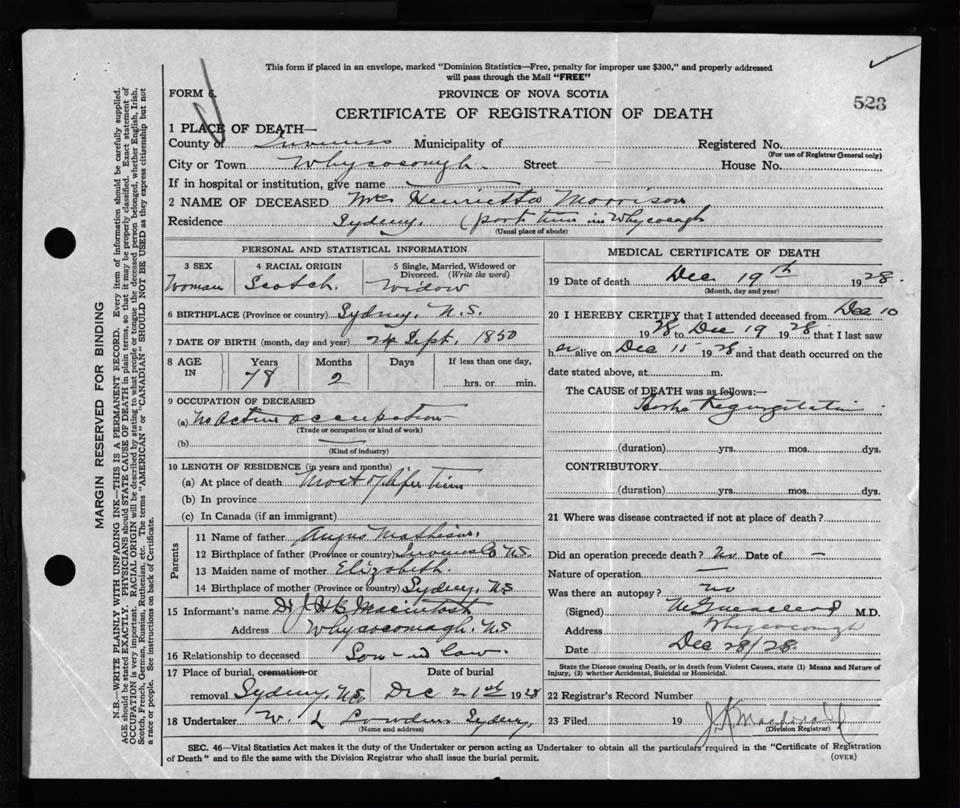 This form if placed in an envelope, marked "Dominion Statistics—Free, penalty for improper use $300," and properly addressed
will pass through the Mail "FREE"
FORM 6.
PROVINCE OF NOVA SCOTIA
523
CERTIFICATE OF REGISTRATION OF DEATH
1 PLACE OF DEATH—
County of Inverness Municipality of Registered No.
(For use of Registrar General only)
City or Town Whycocomagh Street — House No.
If in hospital or institution, give name
2 NAME OF DECEASED Mrs Henrietta Morrison
Residence Sydney. (part time in Whycocomagh
(Usual place of abode)
PERSONAL AND STATISTICAL INFORMATION
3 SEX 4 RACIAL ORIGIN 5 Single, Married, Widowed or Divorced. (Write the word)
Woman Scotch Widow
6 BIRTHPLACE (Province or country) Sydney, N.S.
7 DATE OF BIRTH (month, day and year) 24 Sept. 1850
8 AGE IN Years Months Days If less than one day,
78 2 hrs. or min.
9 OCCUPATION OF DECEASED
(a) No active occupation
(Trade or occupation or kind of work)
(b) —
(Kind of industry)
10 LENGTH OF RESIDENCE (in years and months)
(a) At place of death Most of life time
(b) In province
(c) In Canada (if an immigrant)
Parents
11 Name of father Angus Matheson.
12 Birthplace of father (Province or country) Inverness Co N.S.
13 Maiden name of mother Elizabeth.
14 Birthplace of mother (Province or Country) Sydney, N.S
15 Informant's name MacIntosh
Address Whycocomagh, N.S
16 Relationship to deceased Son-in law.
17 Place of burial, cremation or removal Date of burial
Sydney, N.S. Dec 21st 1928
18 Undertaker W. L Sydney,
(Name and address)
MEDICAL CERTIFICATE OF DEATH
19 Date of death Dec 19th 1928.
(Month, day and year)
20 I HEREBY CERTIFY that I attended deceased from Dec 10
1928 to Dec 19 1928. that I last saw
her alive on Dec 11 1928 and that death occurred on the
date stated above, at m.
The CAUSE of DEATH was as follows:—
Regurgitation
(duration) yrs. mos. dys.
CONTRIBUTORY
(duration) yrs. mos. dys.
21 Where was disease contracted if not at place of death?
Did an operation precede death? No Date of —
Nature of operation —
Was there an autopsy? no
(Signed) M.D.
Address Whycocomagh
Date Dec 28/28.
State the Disease causing Death, or in death from Violent Causes, state (1) Means and Nature of
Injury, (2) whether Accidental, Suicidal or Homicidal.
22 Registrar's Record Number
23 Filed 19
(Division Registrar)
SEC. 46—Vital Statistics Act makes it the duty of the Undertaker or person acting as Undertaker to obtain all the particulars required in the "Certificate of Registration
of Death" and to file the same with the Division Registrar who shall issue the burial permit.
(OVER)
MARGIN RESERVED FOR BINDING
N.B.—WRITE PLAINLY WITH UNFADING INK—THIS IS A PERMANENT RECORD. Every item of information should be carefully supplied.
AGE should be stated EXACTLY. PHYSICIANS should STATE CAUSE OF DEATH in plain terms, so that it may be properly classified. Exact statement of
OCCUPATION is very important. RACIAL ORIGIN will be described by stating to what people or tongue the deceased person belonged, whether English, Irish,
Scotch, French, German, Russian, Ruthenian, etc. The terms "AMERICAN" or "CANADIAN" SHOULD NOT BE USED as they express citizenship but not
a race or people. See instructions on back of Certificate.